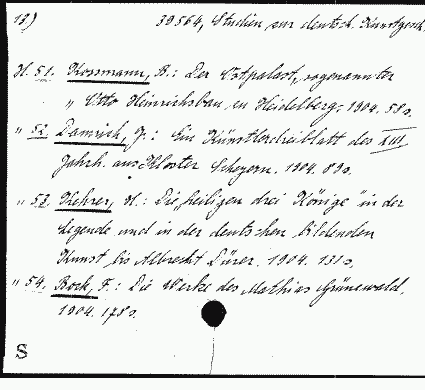 12) 39564, Studien zur deutsch. Kunstgesch.
H. 51. Kossmann, B.: Der Ostpalast, sogenannter
„ Otto Heinrichsbau zu Heidelberg. 1904. 58 S.
„ 52. Damrich, J.: Ein Künstlerdreiblatt des XIII.
Jahrh. aus Kloster Scheyern. 1904. 89 S.
„ 53. Kehrer, H.: Die „heiligen drei Könige" in der
Legende und in der deutschen bildenden
Kunst bis Albrecht Dürer. 1904. 131 S.
„ 54. Bock, F.: Die Werke des Mathias Grünewald.
1904. 178 S.
S